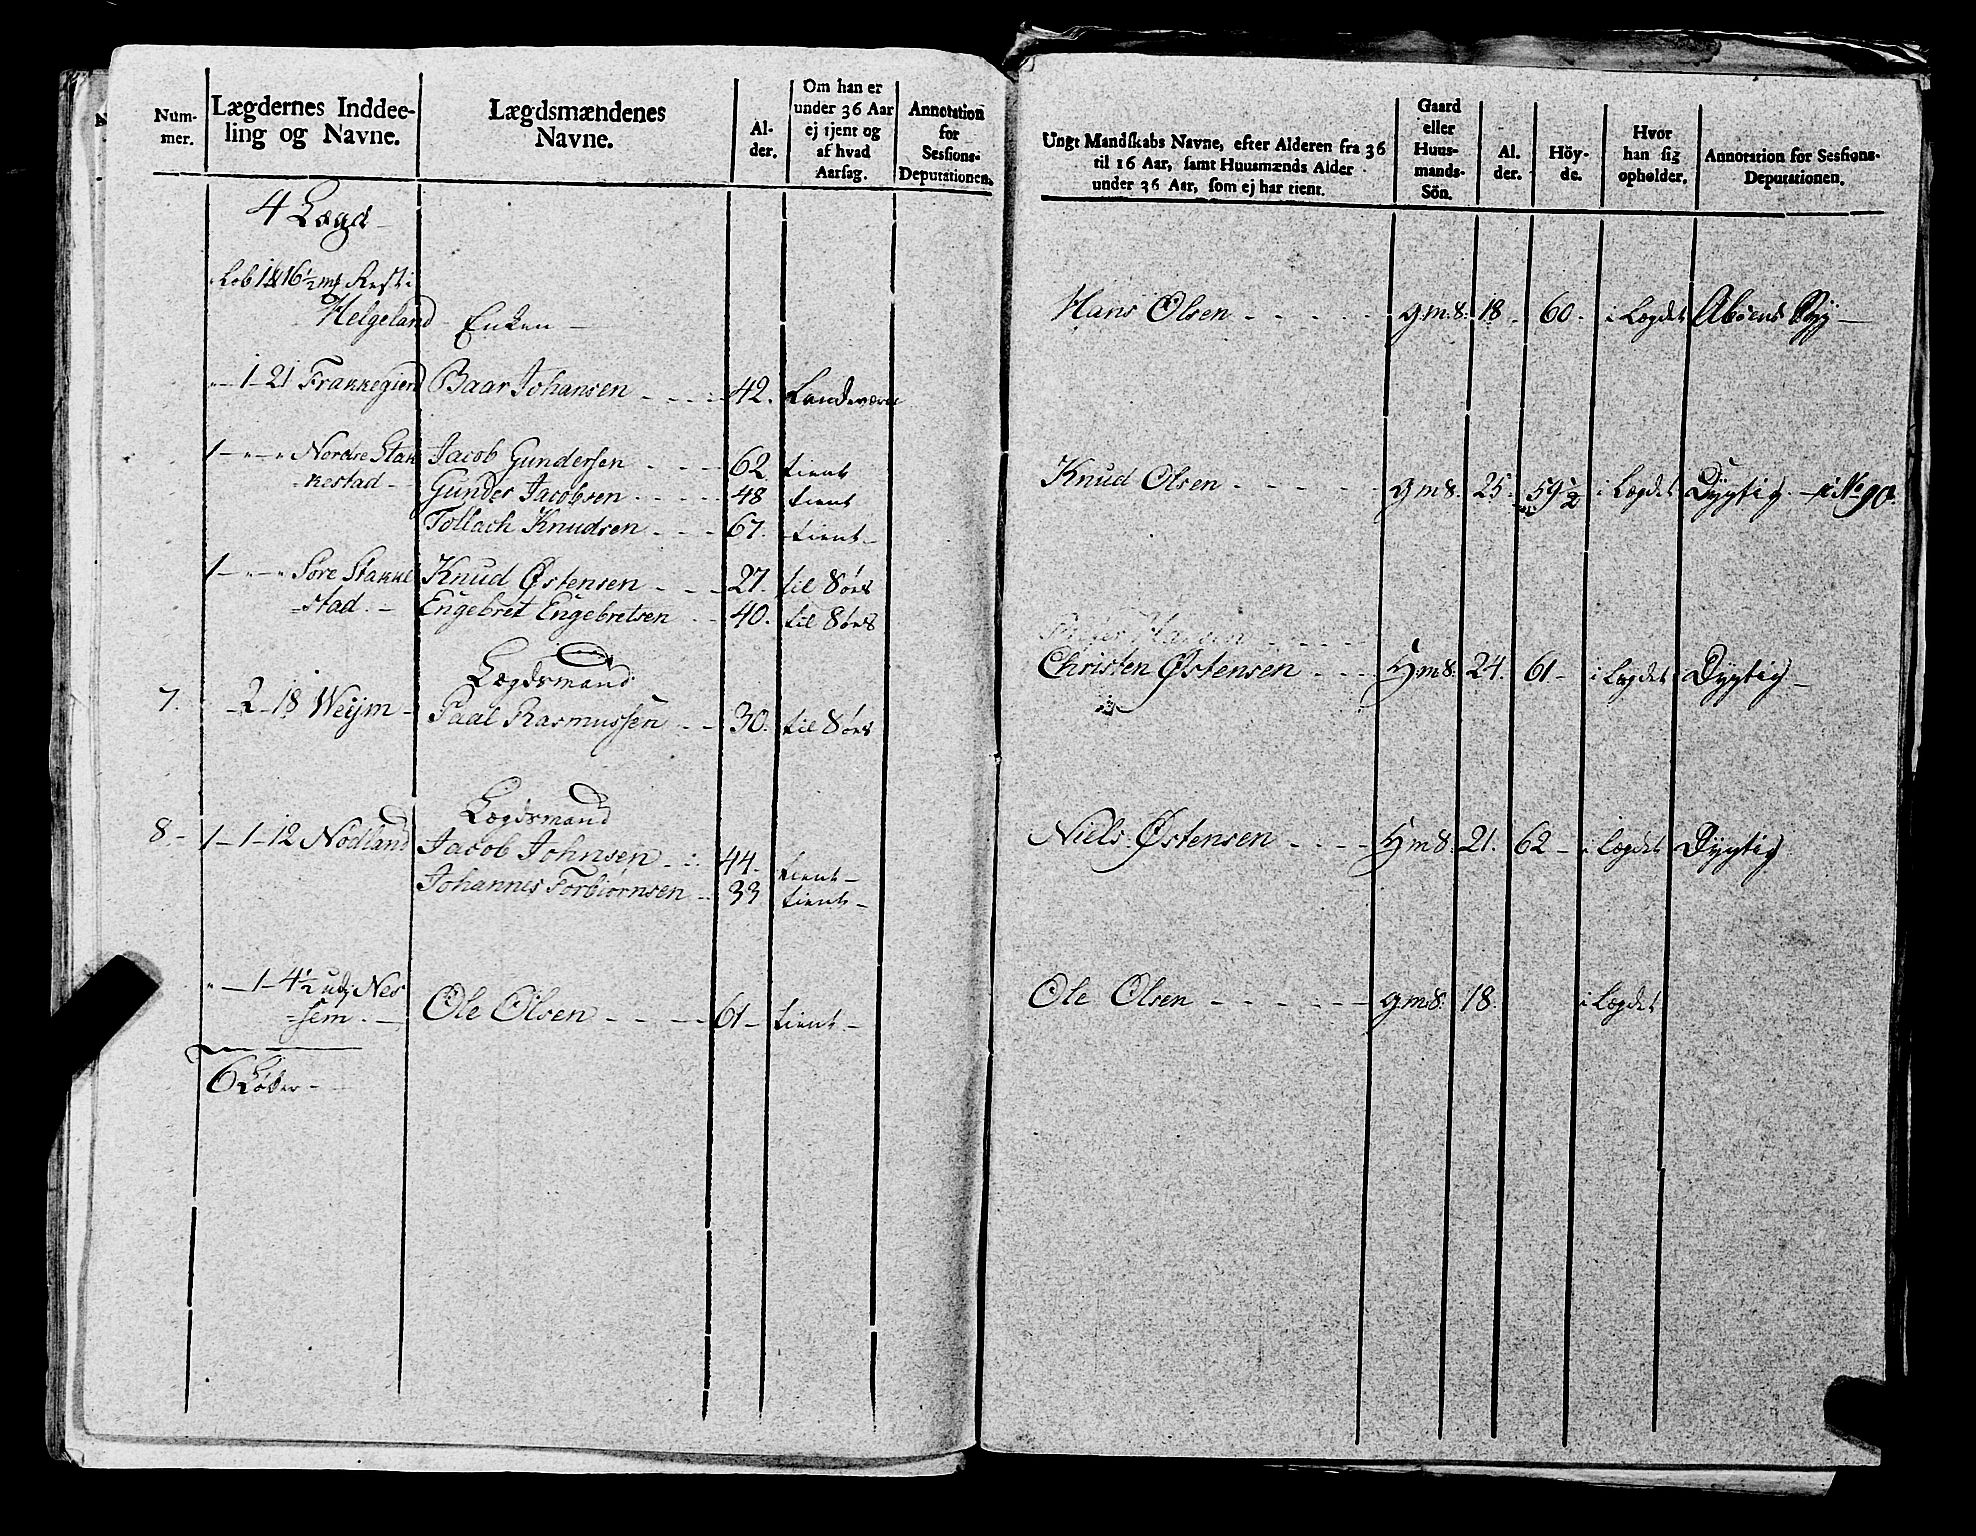 Num-
mer.
Lægdernes Inddee-
ling og Navne.
Lægdsmændenes
Navne.
Al-
der.
Om han er
under 36 Aar
ej tjent og
af hvad
Aarsag.
Annotation
for
Sessions-
Deputationen.
4 Lægd
Løb 1 16 1/2 Rest i
Helgeland - Enken -
" - 1 - 21 Frakkegierd Baar Johansen - - - - 42. Landeværn
1 - " - " Nordre Stak Jacob Gundersen - - - - 62. tient
=kestad - Gunder Jacobsen - - - - 48 tient
Tollach Knudsen - - - 67. tient -
1 - " - " Søre Stakke Knud Østensen - - - 27. til Søes
=stad. - Engebret Engebretsen - - 40. til Søes
Lægdsmand
7. - 2 - 18 Weijm - Paal Rasmussen - - 30. til Søes
Lægdsmand
8 - 1 - 1 - 12 Nødland Jacob Johnsen - - 44. tient -
Johannes Torbiørnsen - - 33 tient -
" - 1 - 4 1/2 udj Nes
=sem. - Ole Olsen - - - - 61 - tient -
6 Løber -
Ungt Mandskabs Navne, efter Alderen fra 36
til 16 Aar, samt Huusmænds Alder
under 36 Aar, som ej har tient.
Gaard
eller
Huus-
mands-
Sön.
Al.
der.
Höy-
de.
Hvor
han sig
opholder.
Annotation for Sessions-
Deputationen.
Hans Olsen - - - - - gm.s. 18. 60. i Lægdet
Knud Olsen - - - - - gms. 25. 59 1/2 i Lægdet Dygtig. - i No 90.
Hansen - - - -
Christen Østensen - - - Hms. 24. 61 - i Lægdet Dygtig -
Niels Østensen - - - - Hms. 21. 62 - i Lægdet Dygtig
Ole Olsen - - - - - gms. 18. i Lægdet